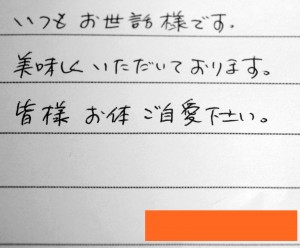 いつも お世話様です.
美味しく いただいております。
皆様 お体 ご自愛下さい。